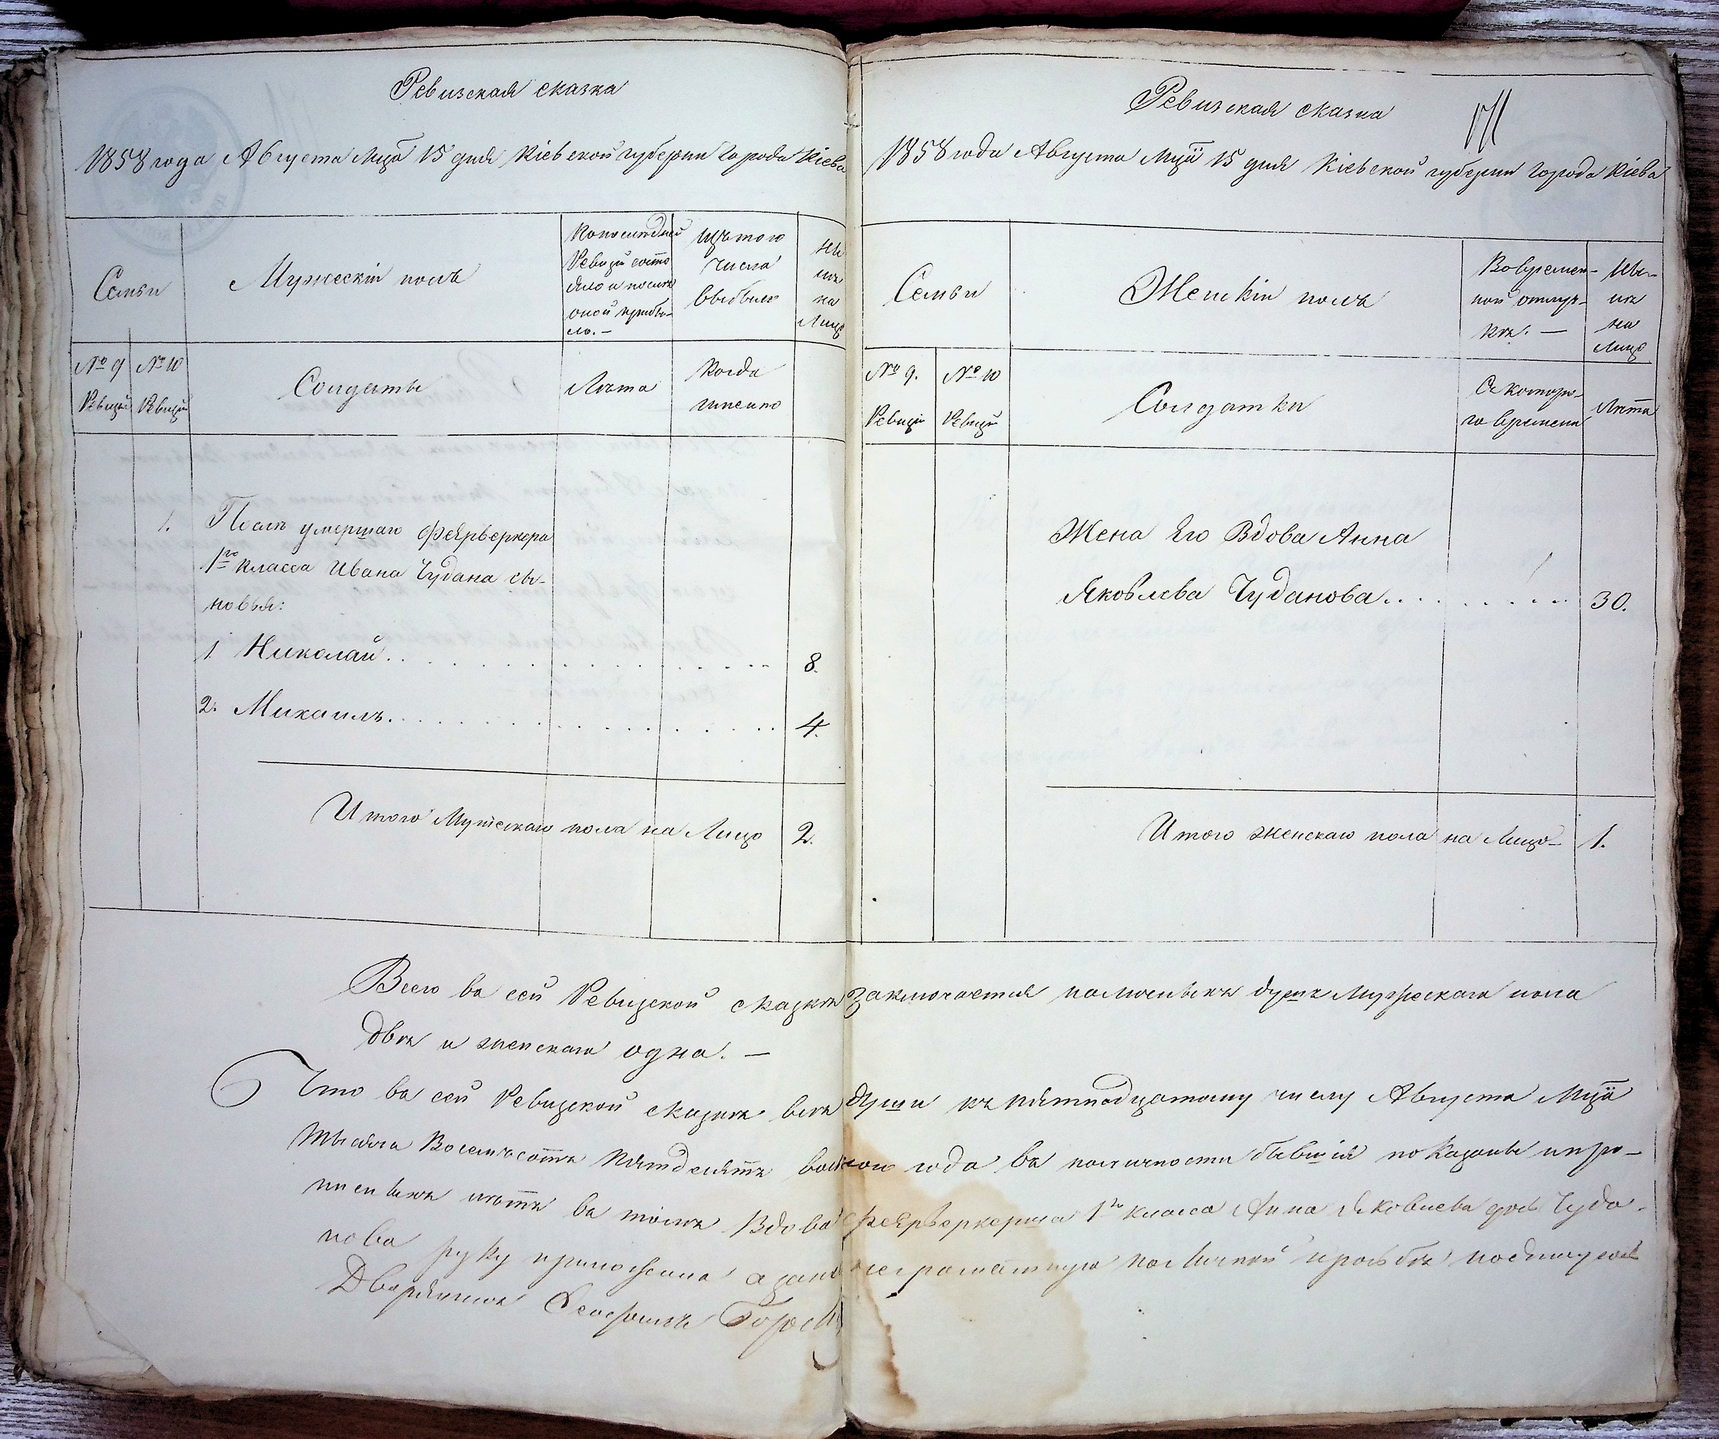 Ревизская сказка
1858 года Августа Мца 15 дня Кіевской губерніи города Кіева
Семьи
Мужескій полъ
По последней
Ревизіи состо
яло и после
оной прибы-
ло. —
Изъ того
числа
выбыло
Ны
нѣ
на
Лицо
№ 9
Ревизіи
№ 10
Ревизіи
Солдаты
Лѣта
Когда
именно
1. Послѣ умершаго Фейерверкера
1го класса Ивана Чудана сы-
новья:
1. Николай . . . 8.
2. Михаилъ . . . 4.
Итого Мужескаго пола на Лицо 2.
Ревизская сказка
1858 года Августа Мца 15 дня Кіевской губерніи города Кіева
Семьи
Женскій полъ
Во времен-
ной отлуч-
кѣ. —
Ны-
нѣ
на
Лицо
№ 9.
Ревизіи
№ 10
Ревизіи
Солдатки
Съ которо-
го времени
Лѣта
Жена Его Вдова Анна
Яковлева Чуданова . . . 30.
Итого женскаго пола на Лицо — 1.
Всего въ сей Ревизской сказкѣ заключается наличныхъ душъ Мужескаго пола
двѣ и женскаго одна. —
Что въ сей Ревизской сказкѣ всѣ души къ пятнадцатому числу Августа Мца
тысяча Восемьсотъ пятдесятъ восмого года въ наличности бывшія показаны и про-
писныхъ нѣтъ въ томъ Вдова Фейерверкерша 1го класса Анна Яковлева дочь Чуда-
нова руку приложила а за неграмотную по личной прозьбѣ подписался
Дворянинъ